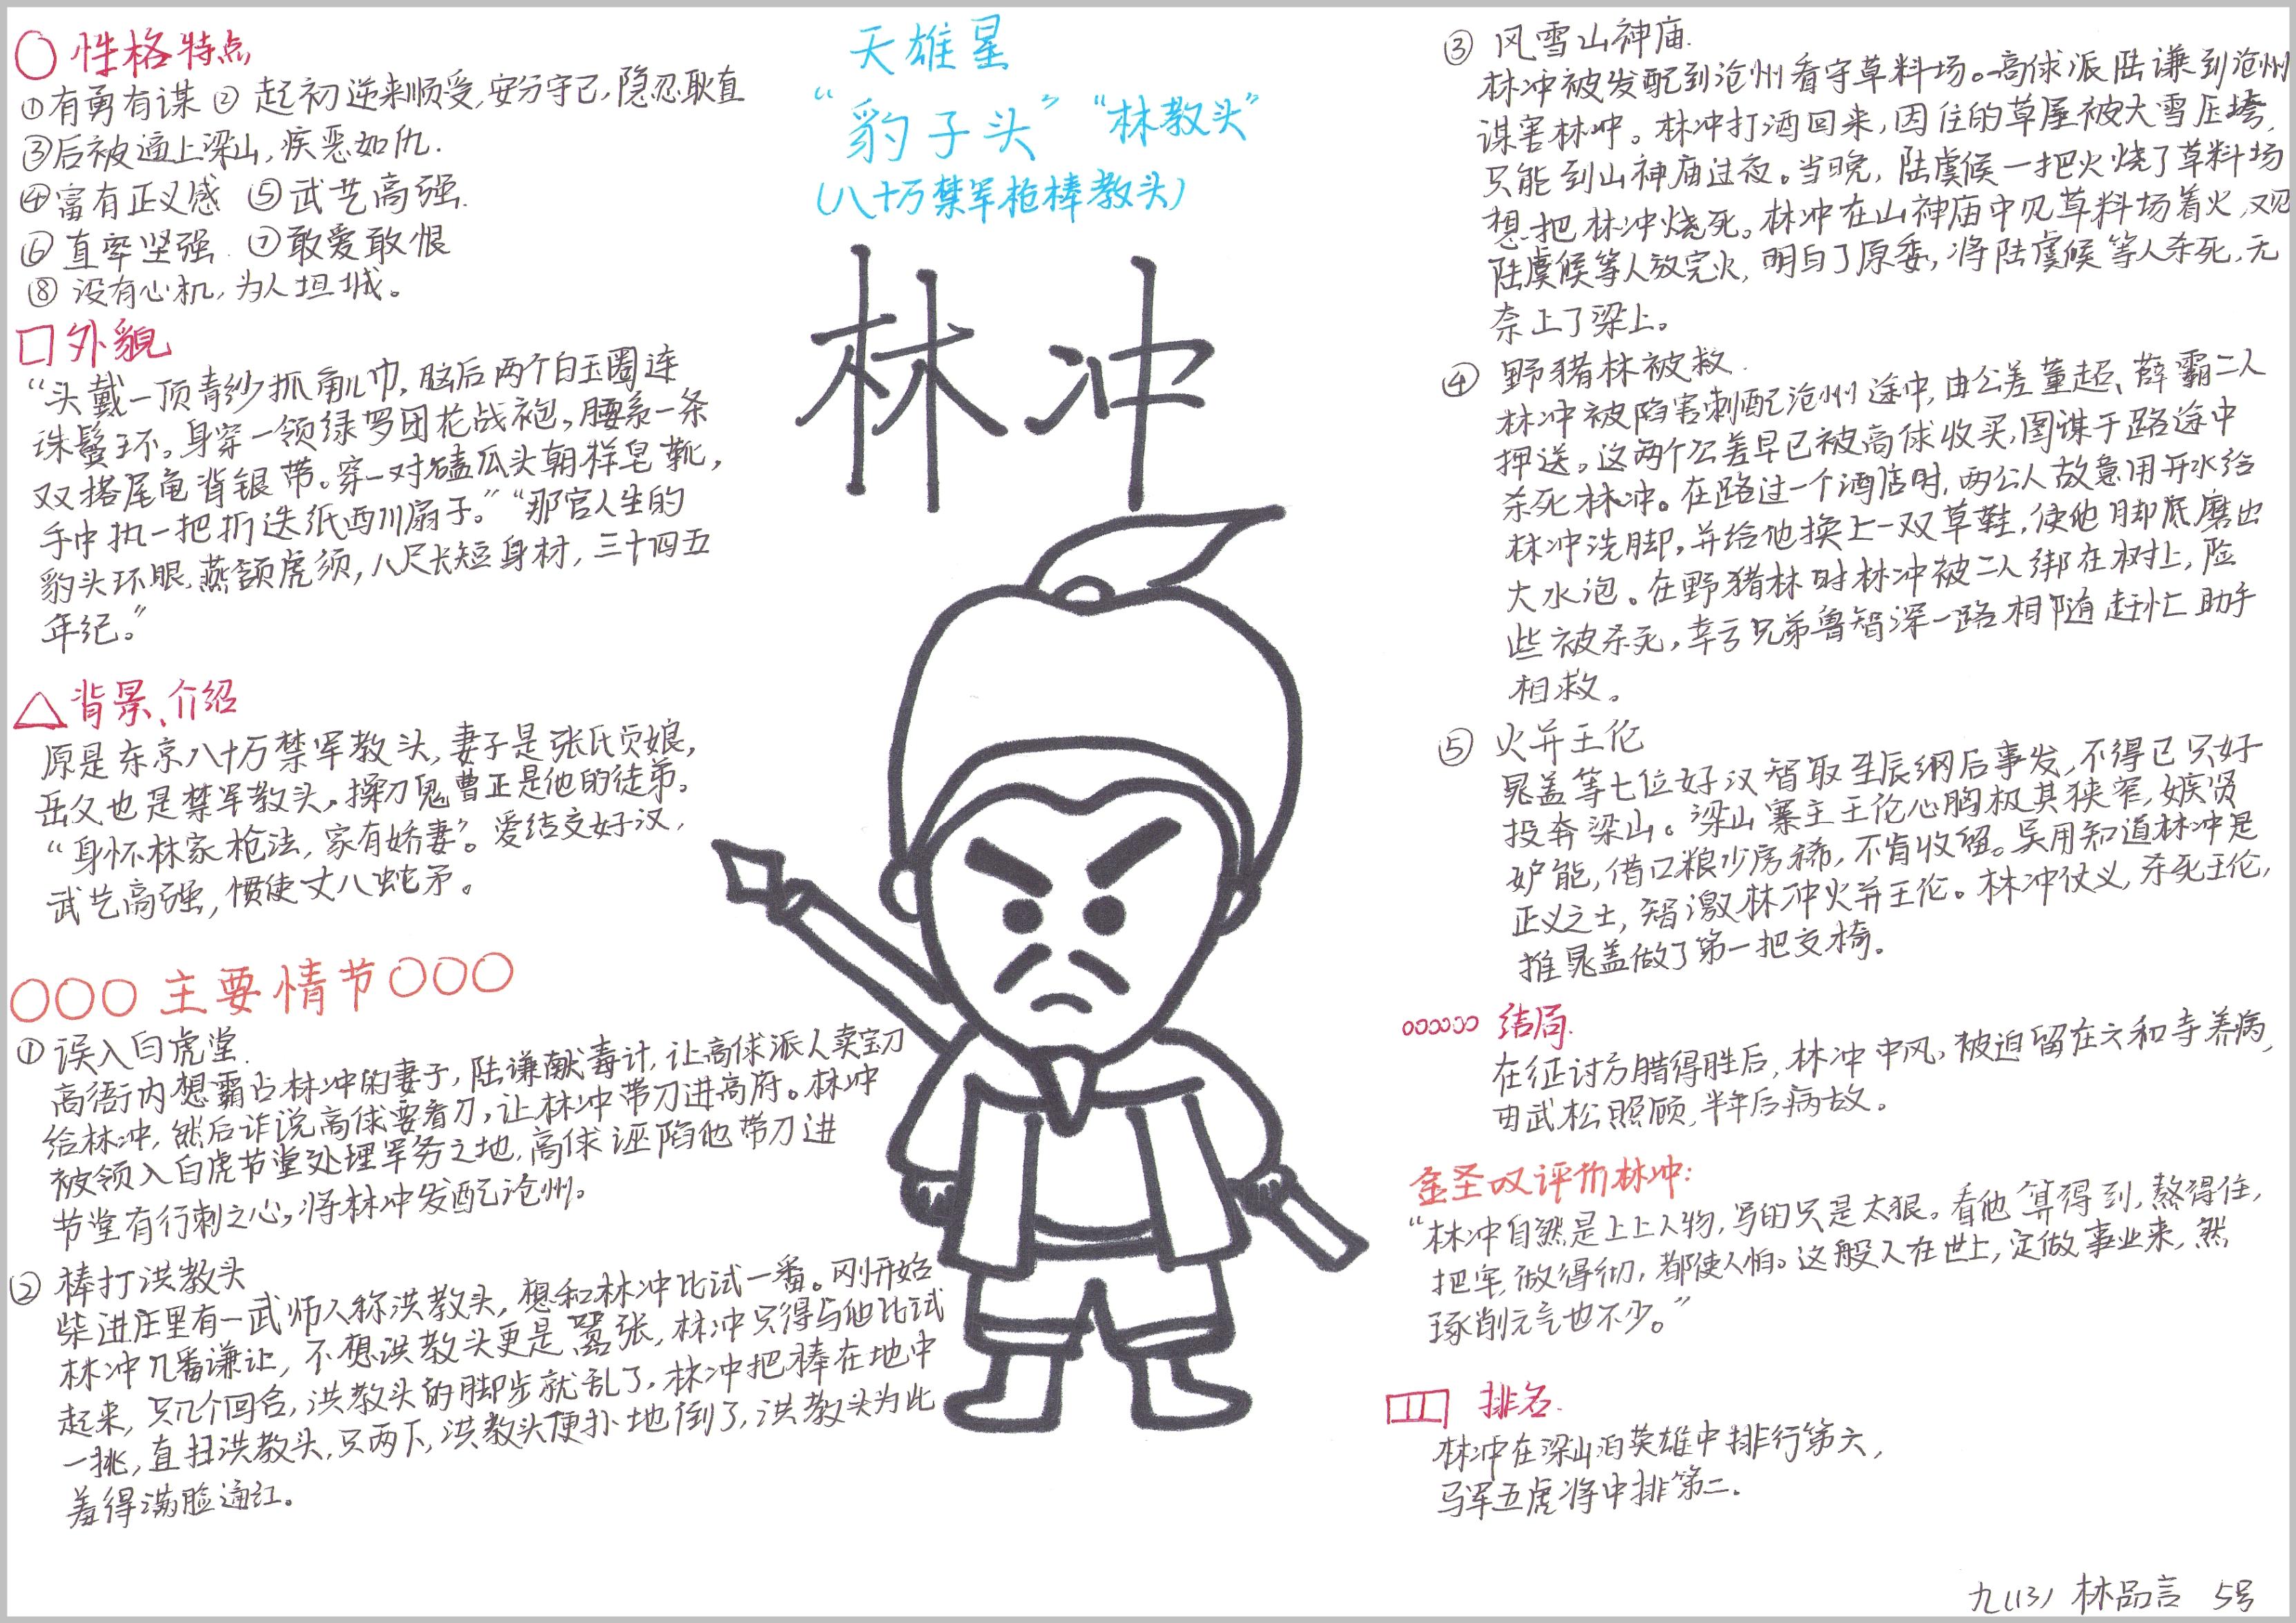 天雄星
“豹子头” “林教头”
(八十万禁军枪棒教头)
林冲
性格特点
①有勇有谋 ②起初逆来顺受,安分守己,隐忍耿直
③后被逼上梁山,疾恶如仇.
④富有正义感 ⑤武艺高强.
⑥直率坚强. ⑦敢爱敢恨
⑧没有心机,为人坦城。
外貌
“头戴一顶青纱抓角儿巾,脑后两个白玉圈连
珠鬓环。身穿一领绿罗团花战袍,腰系一条
双搭尾龟背银带。穿一对磕瓜头朝样皂靴,
手中执一把折迭纸西川扇子。”“那官人生的
豹头环眼,燕颔虎须,八尺长短身材,三十四五
年纪。”
背景介绍
原是东京八十万禁军教头,妻子是张氏贞娘,
岳父也是禁军教头。操刀鬼曹正是他的徒弟。
“身怀林家枪法,家有娇妻”。爱结交好汉,
武艺高强,惯使丈八蛇矛。
主要情节
①误入白虎堂.
高衙内想霸占林冲的妻子,陆谦献毒计,让高俅派人卖宝刀
给林冲,然后诈说高俅要看刀,让林冲带刀进高府。林冲
被领入白虎节堂处理军务之地,高俅诬陷他带刀进
节堂有行刺之心,将林冲发配沧州。
②棒打洪教头
柴进庄里有一武师人称洪教头,想和林冲比试一番。刚开始
林冲几番谦让,不想洪教头更是嚣张,林冲只得与他比试
起来,只几个回合,洪教头的脚步就乱了,林冲把棒在地中
一挑,直扫洪教头,只两下,洪教头便扑地倒了,洪教头为此
羞得满脸通红。
③风雪山神庙.
林冲被发配到沧州看守草料场。高俅派陆谦到沧州
谋害林冲。林冲打酒回来,因住的草屋被大雪压垮,
只能到山神庙过夜。当晚,陆虞候一把火烧了草料场
想把林冲烧死。林冲在山神庙中见草料场着火,又见
陆虞候等人放完火,明白了原委,将陆虞候等人杀死,无
奈上了梁上。
④野猪林被救.
林冲被陷害刺配沧州途中,由公差董超、薛霸二人
押送。这两个公差早已被高俅收买,图谋于路途中
杀死林冲。在路过一个酒店时,两公人故意用开水给
林冲洗脚,并给他换上一双草鞋,使他脚底磨出
大水泡。在野猪林时林冲被二人绑在树上,险
些被杀死,幸亏兄弟鲁智深一路相随赶忙助手
相救。
⑤火并王伦
晁盖等七位好汉智取生辰纲后事发,不得已只好
投奔梁山。梁山寨主王伦心胸极其狭窄,嫉贤
妒能,借口粮少房稀,不肯收留。吴用知道林冲是
正义之士,智激林冲火并王伦。林冲仗义,杀死王伦,
推晁盖做了第一把交椅。
结局.
在征讨方腊得胜后,林冲中风,被迫留在六和寺养病,
由武松照顾,半年后病故。
金圣叹评价林冲:
“林冲自然是上上人物,写的只是太狠。看他算得到,熬得住,
把牢,做得彻,都使人怕。这般人在世上,定做事业来,然
琢削元气也不少。”
排名.
林冲在梁山泊英雄中排行第六,
马军五虎将中排第二.
九(13) 林品言 5号